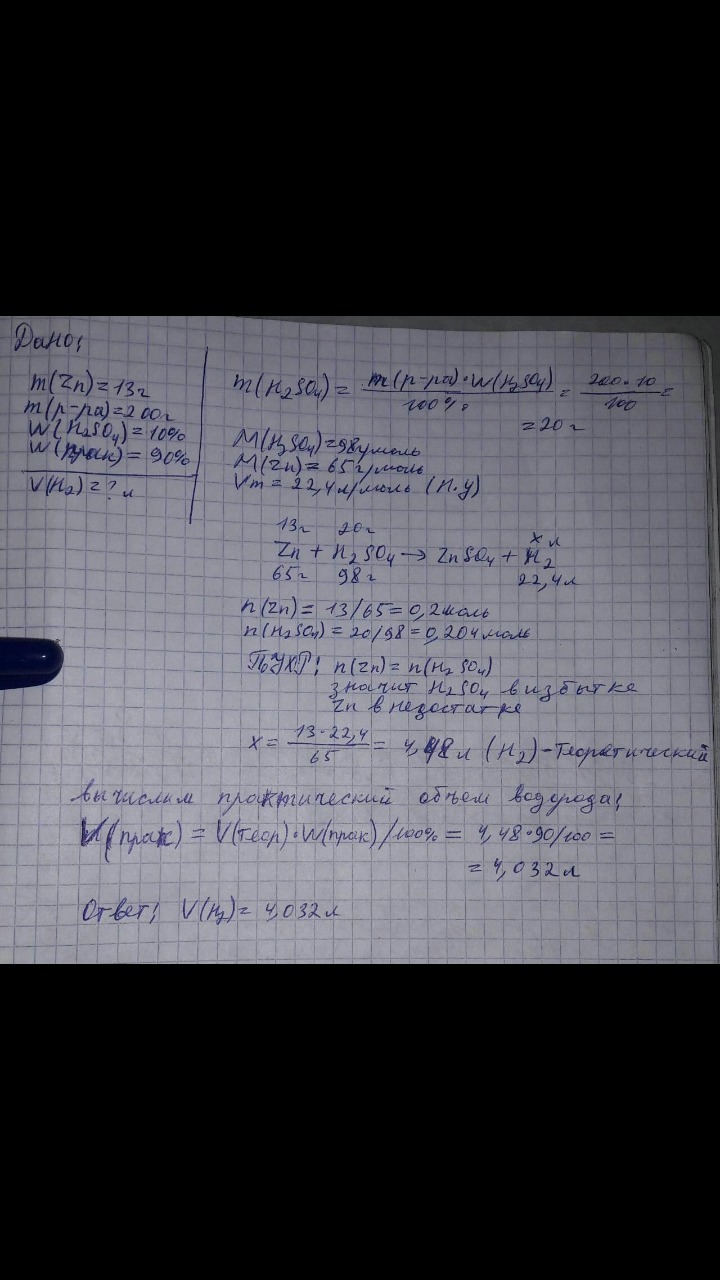 Дано:
m(Zn)=13г
m(р-ра)=200г
W(H₂SO₄)=10%
W(прак)=90%
V(H₂)=? л
m(H₂SO₄)= m(р-ра)·W(H₂SO₄)/100% = 200·10/100 =
=20г
M(H₂SO₄)=98г/моль
M(Zn)=65г/моль
Vm=22,4л/моль (н.у)
13г 20г x л
Zn + H₂SO₄ → ZnSO₄ + H₂
65г 98г 22,4л
n(Zn)= 13/65=0,2моль
n(H₂SO₄)=20/98=0,204моль
ПУХР: n(Zn)=n(H₂SO₄)
значит H₂SO₄ в избытке
Zn в недостатке
x= 13·22,4/65 = 4,48л (H₂)-теоретический
вычислим практический объем водорода:
V(прак) = V(теор)·W(прак)/100% = 4,48·90/100 =
= 4,032л
Ответ: V(H₂)= 4,032л